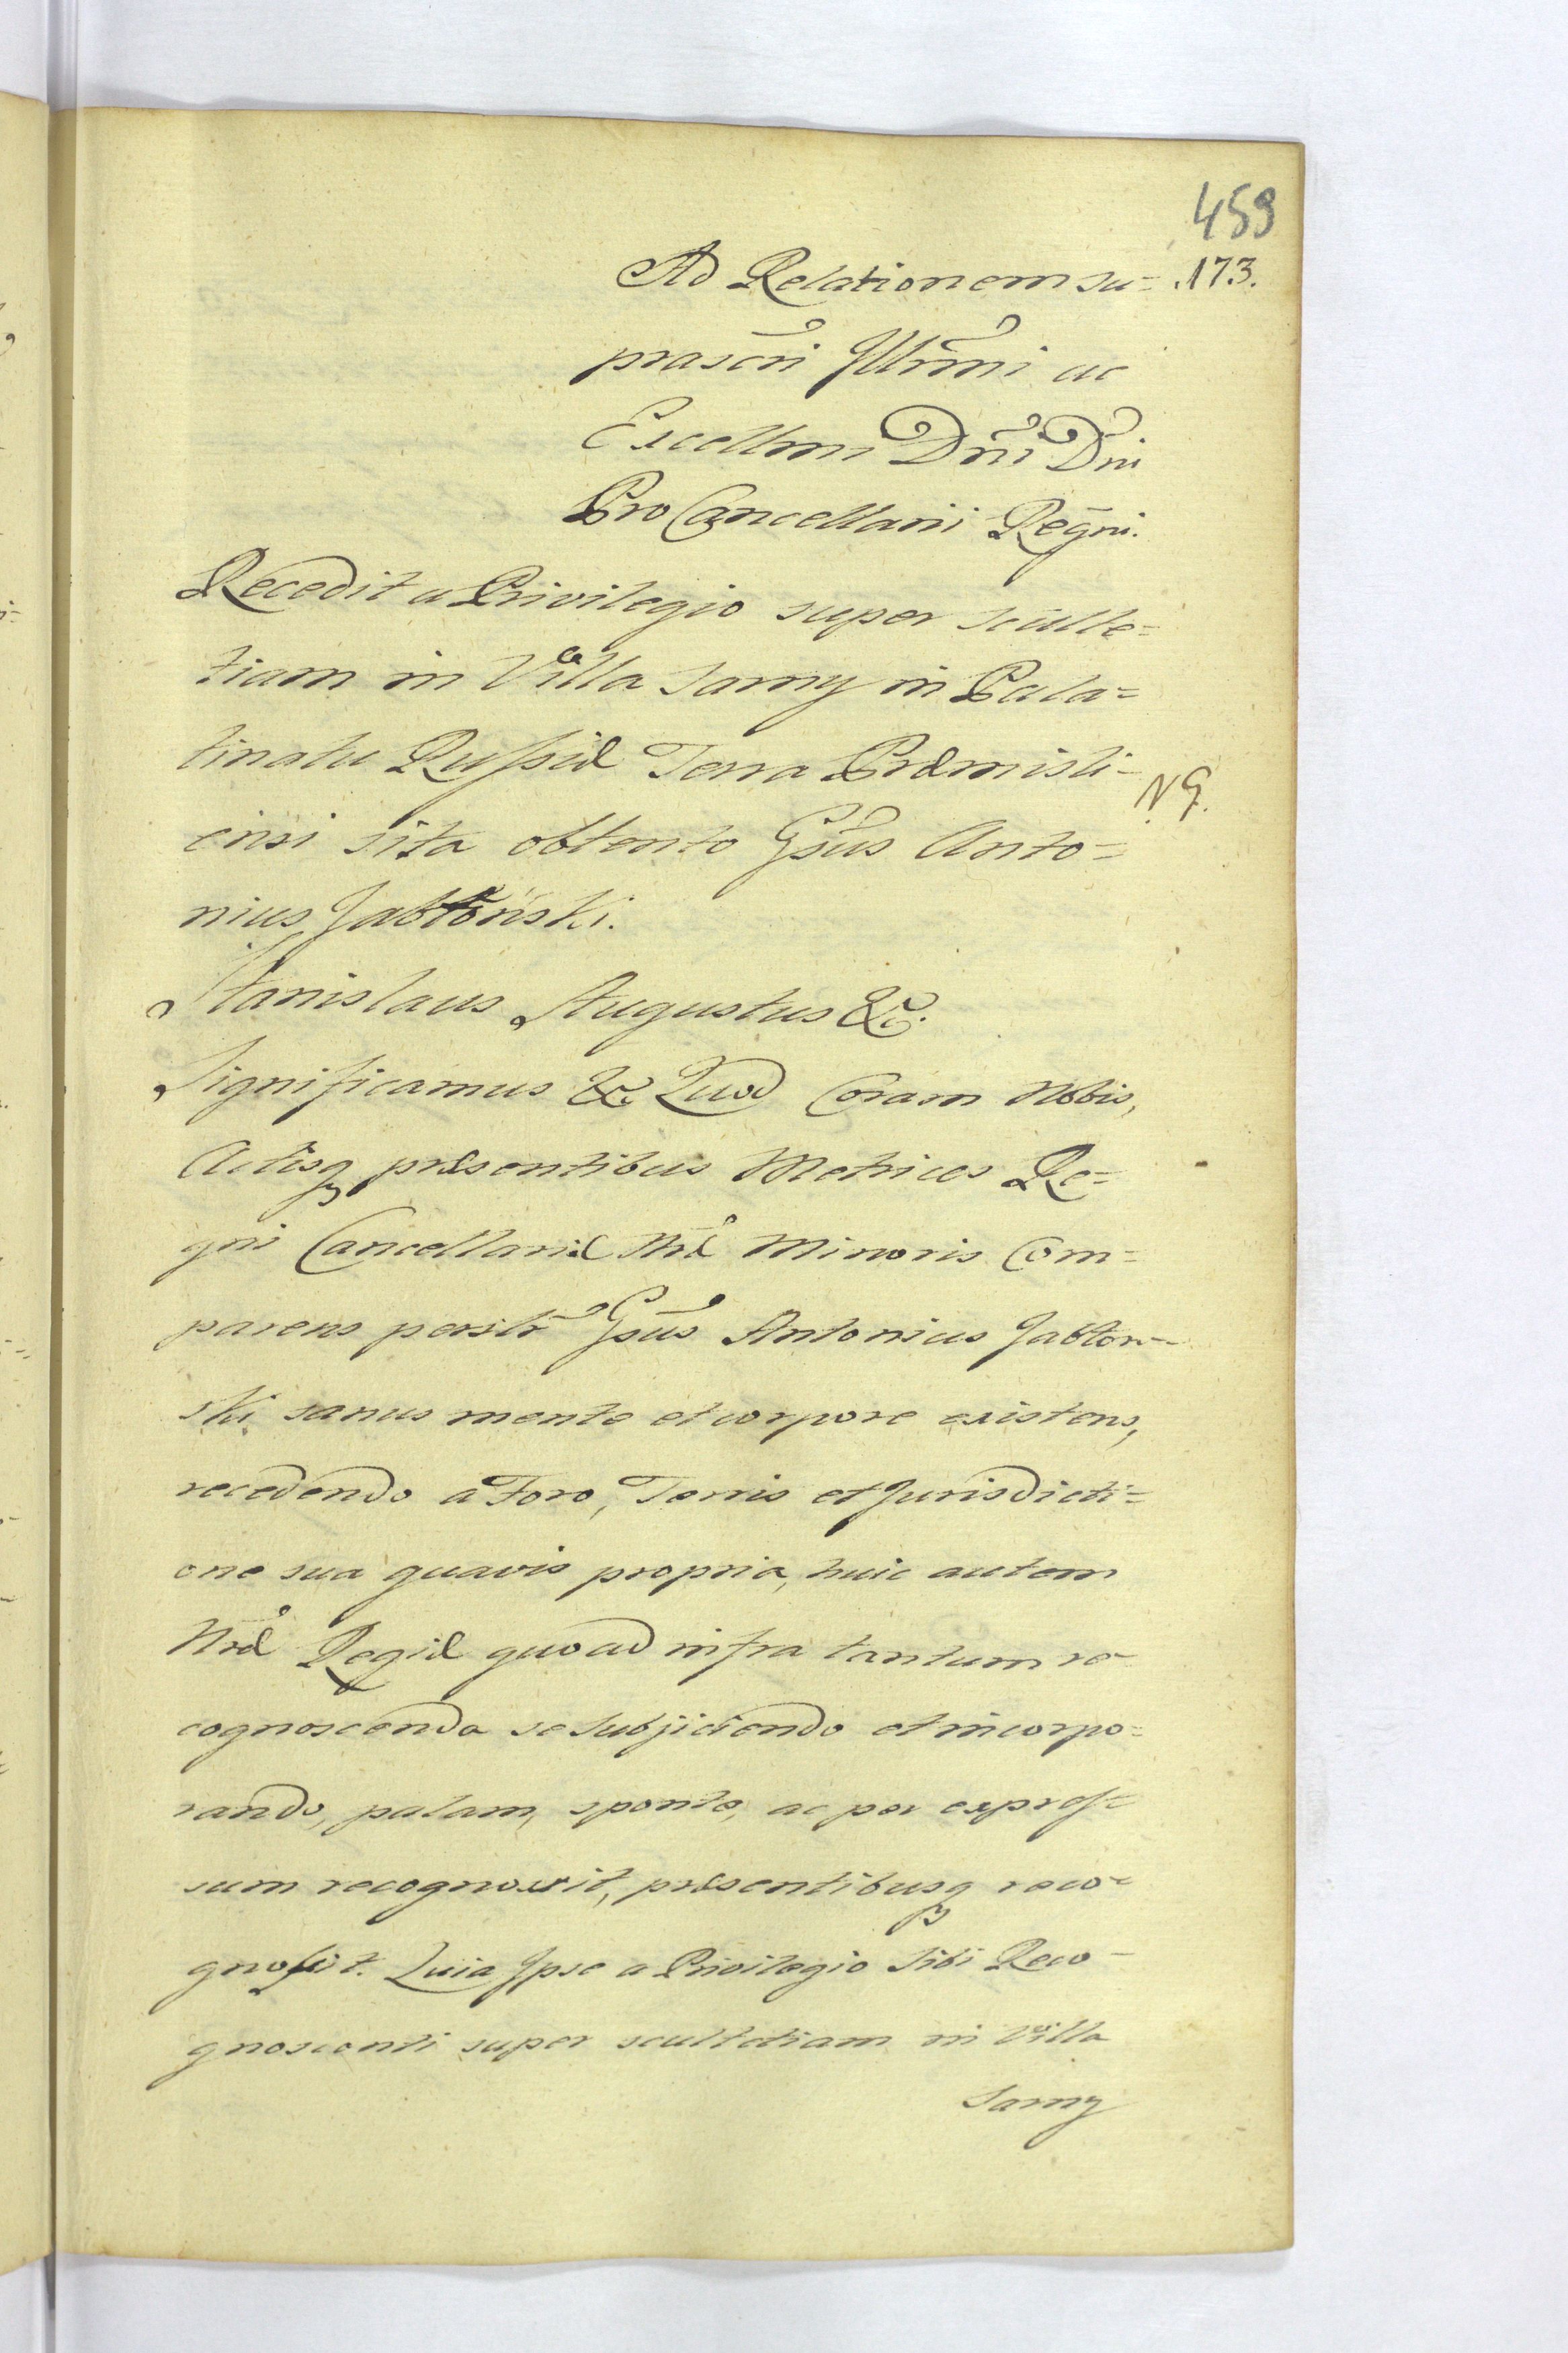 459
173.
Ad Relationem su=
prascri Illrmi ac
Excellmi Dni Dni
Pro Cancellarii Regni.
Recedit a Privilegio super sculte=
tiam in Villa Sarny in Pala=
tinatu Russiæ Terra Præmisli=
N G.
ensi sita obtento Gsus Anto=
nius Jabłoński.
Stanislaus Augustus &c.
Significamus &c Quod Coram Nobis,
Actisq præsentibus Metrices Re=
gni Cancellariæ Nræ Minoris Com=
parens persltr Gsus Antonius Jabłon=
ski sanus mente et corpore existens,
recedendo a Foro, Terris et Jurisdicti=
one sua quavis propria, huic autem
Nræ Regiæ quoad infra tantum re=
cognoscenda se subjiciendo et incorpo=
rando, palam, sponte, ac per expres=
sum recognovit, præsentibusq reco=
gnoscit. Quia Ipse a Privilegio Sibi Reco=
gnoscenti super scultetiam in Villa
Sarny